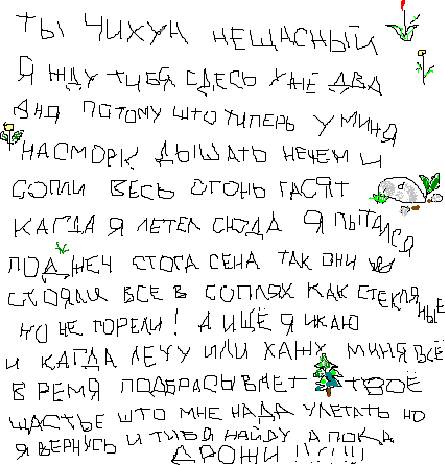 ТЫ ЧИХУН НЕЩАСНЫЙ
Я ЖДУ ТИБЯ СДЕСЬ УЖЕ ДВА
ДНЯ ПОТОМУ ШТО ТИПЕРЬ У МИНЯ
НАСМОРК ДЫШАТЬ НЕЧЕМ И
СОПЛИ ВЕСЬ ОГОНЬ ГАСЯТ
КАГДА Я ЛЕТЕЛ СЮДА Я ПЫТАЛСЯ
ПОДЖЕЧ СТОГА СЕНА ТАК ОНИ
СТОЯЛИ ВСЕ В СОПЛЯХ КАК СТЕКЛЯНЫЕ
НО НЕ ГОРЕЛИ! А ИЩЁ Я ИКАЮ
И КАГДА ЛЕЧУ ИЛИ ХАЖУ МИНЯ ВСЁ
ВРЕМЯ ПОДБРАСЫВАЕТ ТВОЁ
ЩАСТЬЕ ШТО МНЕ НАДА УЛЕТАТЬ НО
Я ВЕРНУСЬ И ТИБЯ НАЙДУ А ПОКА
ДРОЖИ !!!!!